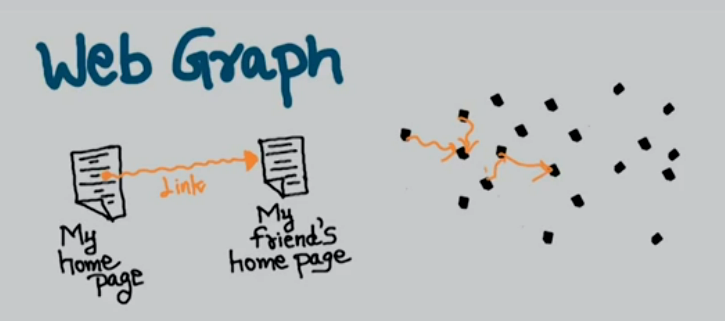 Web Graph
Link
My
home
page
My
friend's
home page